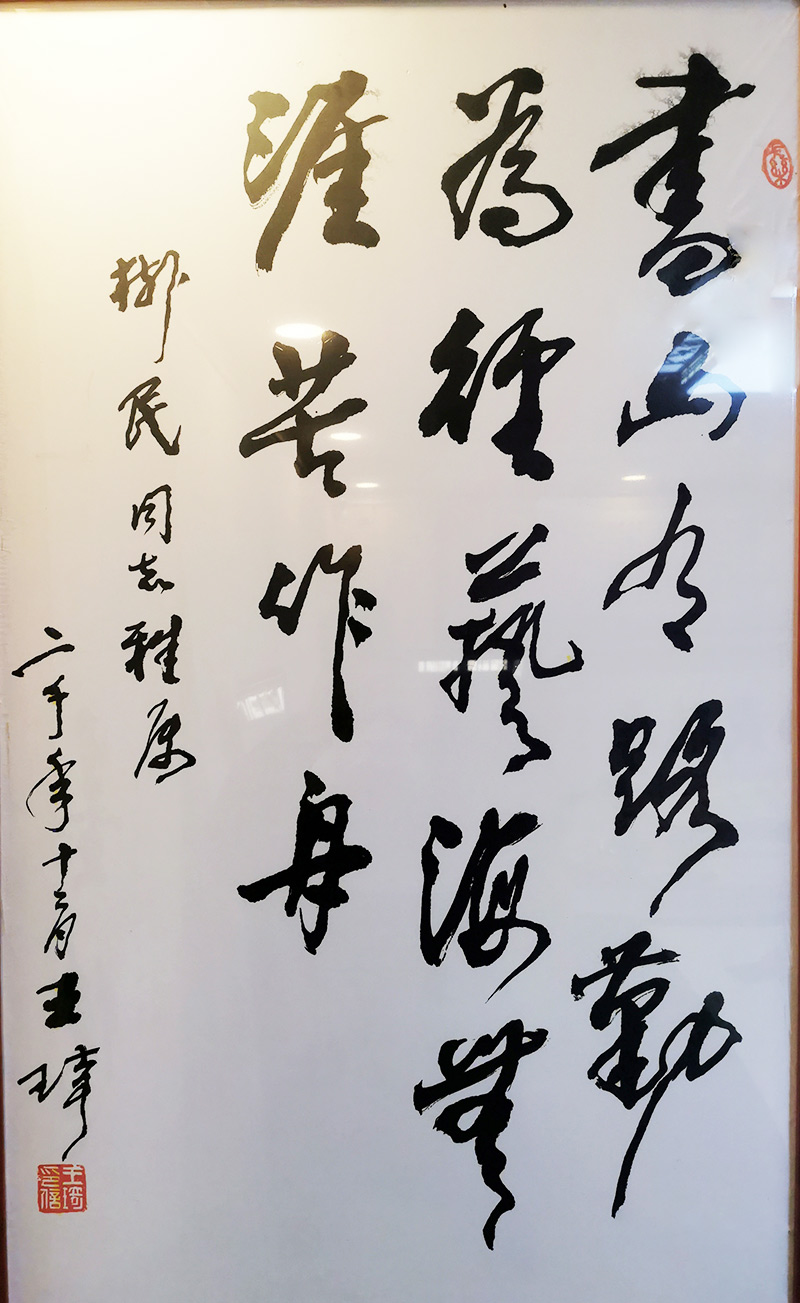 書山有路勤
為徑藝海無
涯苦作舟
柳民同志雅属
二千年十二月王琦
王琦印信